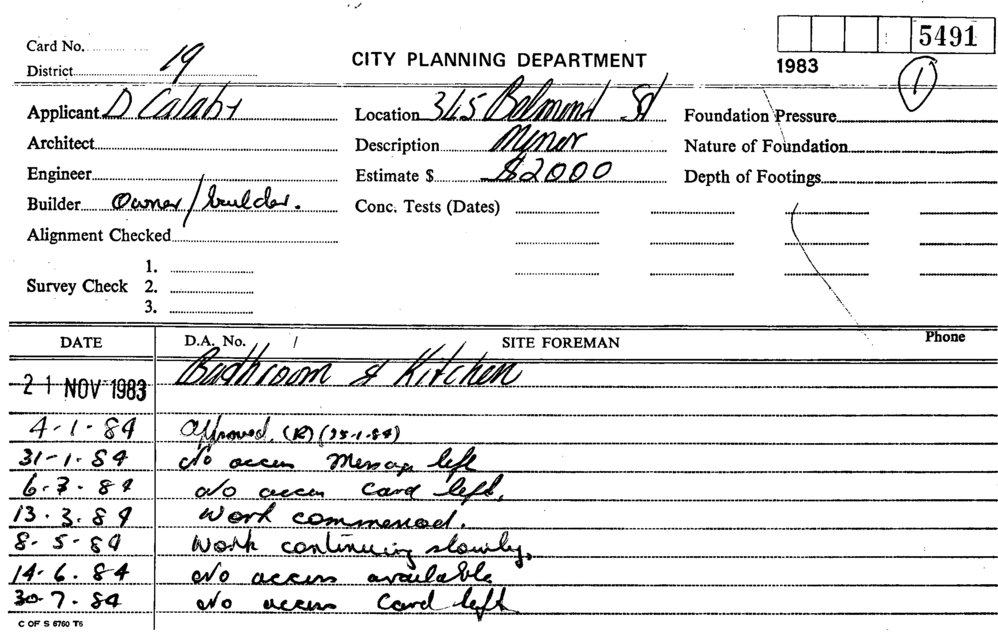 5491
Card No.
CITY PLANNING DEPARTMENT
1983
1
District 19
Applicant D Calabr Location 345 Belmond St Foundation Pressure
Architect Description Minor Nature of Foundation
Engineer Estimate $ $2000 Depth of Footings
Builder Owner/builder. Conc. Tests (Dates)
Alignment Checked
1.
Survey Check 2.
3.
DATE D.A. No. SITE FOREMAN Phone
21 NOV 1983 Bathroom & Kitchen
4-1-84 Approved. (R) (25-1-84)
31-1-84 No access Message left
6.3.84 No access Card left.
13.3.84 Work commenced.
8-5-84 Work continuing slowly.
14-6.84 No access available
30-7.84 No access Card left
C OF S 6760 T6